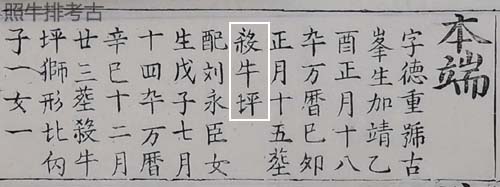 照牛排考古
本端
字德重號古
峯生加靖乙
酉正月十八
卆万曆巳夘
正月十五塟
殺牛坪
配刘永臣女
生戊子七月
十四卆万曆
辛巳十二月
廿三塟殺牛
坪獅形比向
子一女一